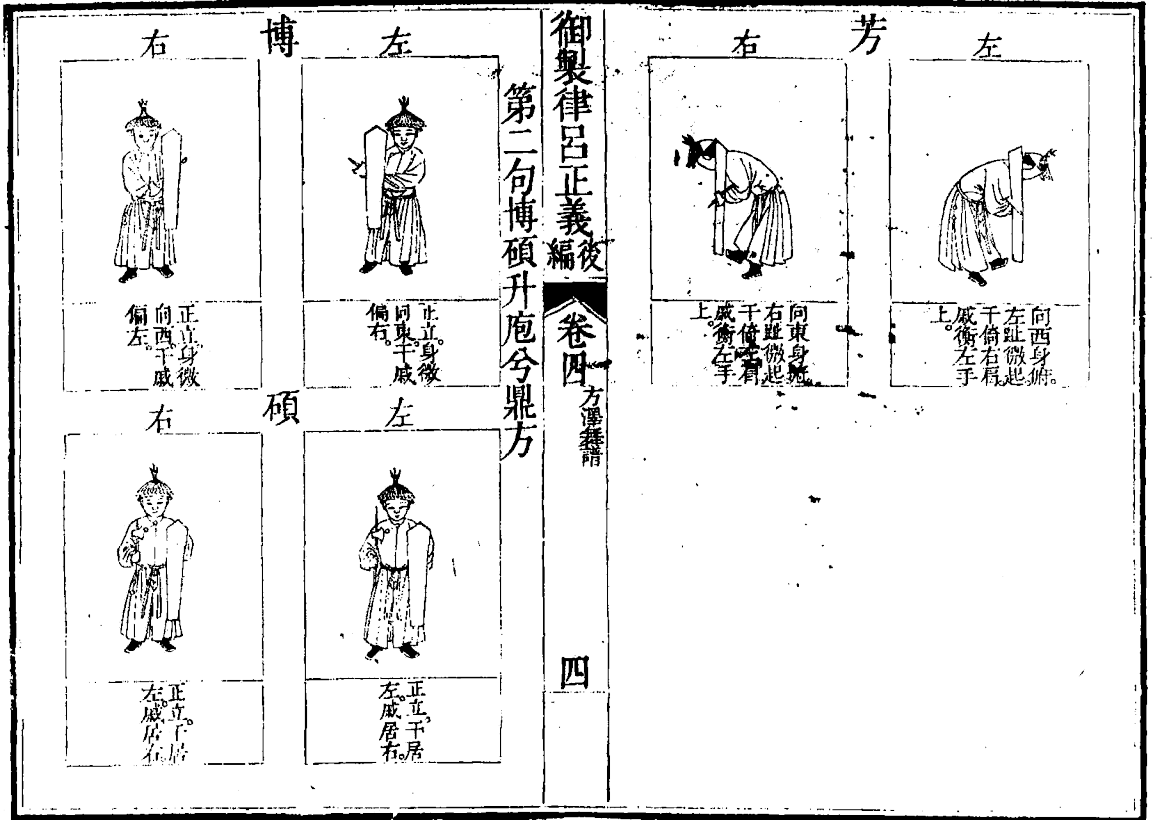 芳
左
向西身俯。
左趾微起。
干倚右肩。
戚衡左手
上。
右
向東身俯
右趾微起
干倚左肩
戚衡左手
上。
御製律呂正義後編
卷四
方澤舞譜
四
第二句博碩升庖兮鼎方
博
左
正立。身微
向東。干戚
偏右。
右
正立。身微
向西。干戚
偏左。
碩
左
正立。干居
左。戚居右。
右
正立。干居
左。戚居右。